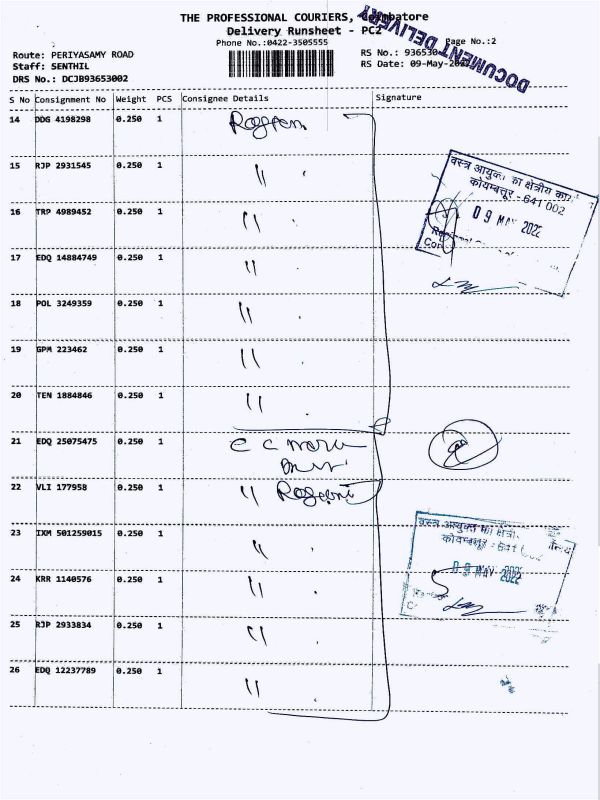 THE PROFESSIONAL COURIERS, Coimbatore
Delivery Runsheet - PC2
Phone No.:0422-3505555
Page No.:2
DOCUMENT DELIVERY
Route: PERIYASAMY ROAD
RS No.: 936530
Staff: SENTHIL
RS Date: 09-May-2022
DRS No.: DCJB93653002
S No Consignment No Weight PCS Consignee Details Signature
14 DDG 4198298 0.250 1
15 RJP 2931545 0.250 1 "
16 TRP 4989452 0.250 1 "
17 EDQ 14884749 0.250 1 "
18 POL 3249359 0.250 1 "
19 GPM 223462 0.250 1 "
20 TEN 1884846 0.250 1 "
21 EDQ 25075475 0.250 1
22 VLI 177958 0.250 1 "
23 IXM 501259015 0.250 1 "
24 KRR 1140576 0.250 1 "
25 RJP 2933834 0.250 1 "
26 EDQ 12237789 0.250 1 "
वस्त्र आयुक्त का क्षेत्रीय
कोयम्बत्तूर - 641 002
09 MAY 2022
वस्त्र आयुक्त का क्षेत्री
कोयम्बत्तूर - 641
09 MAY 2022